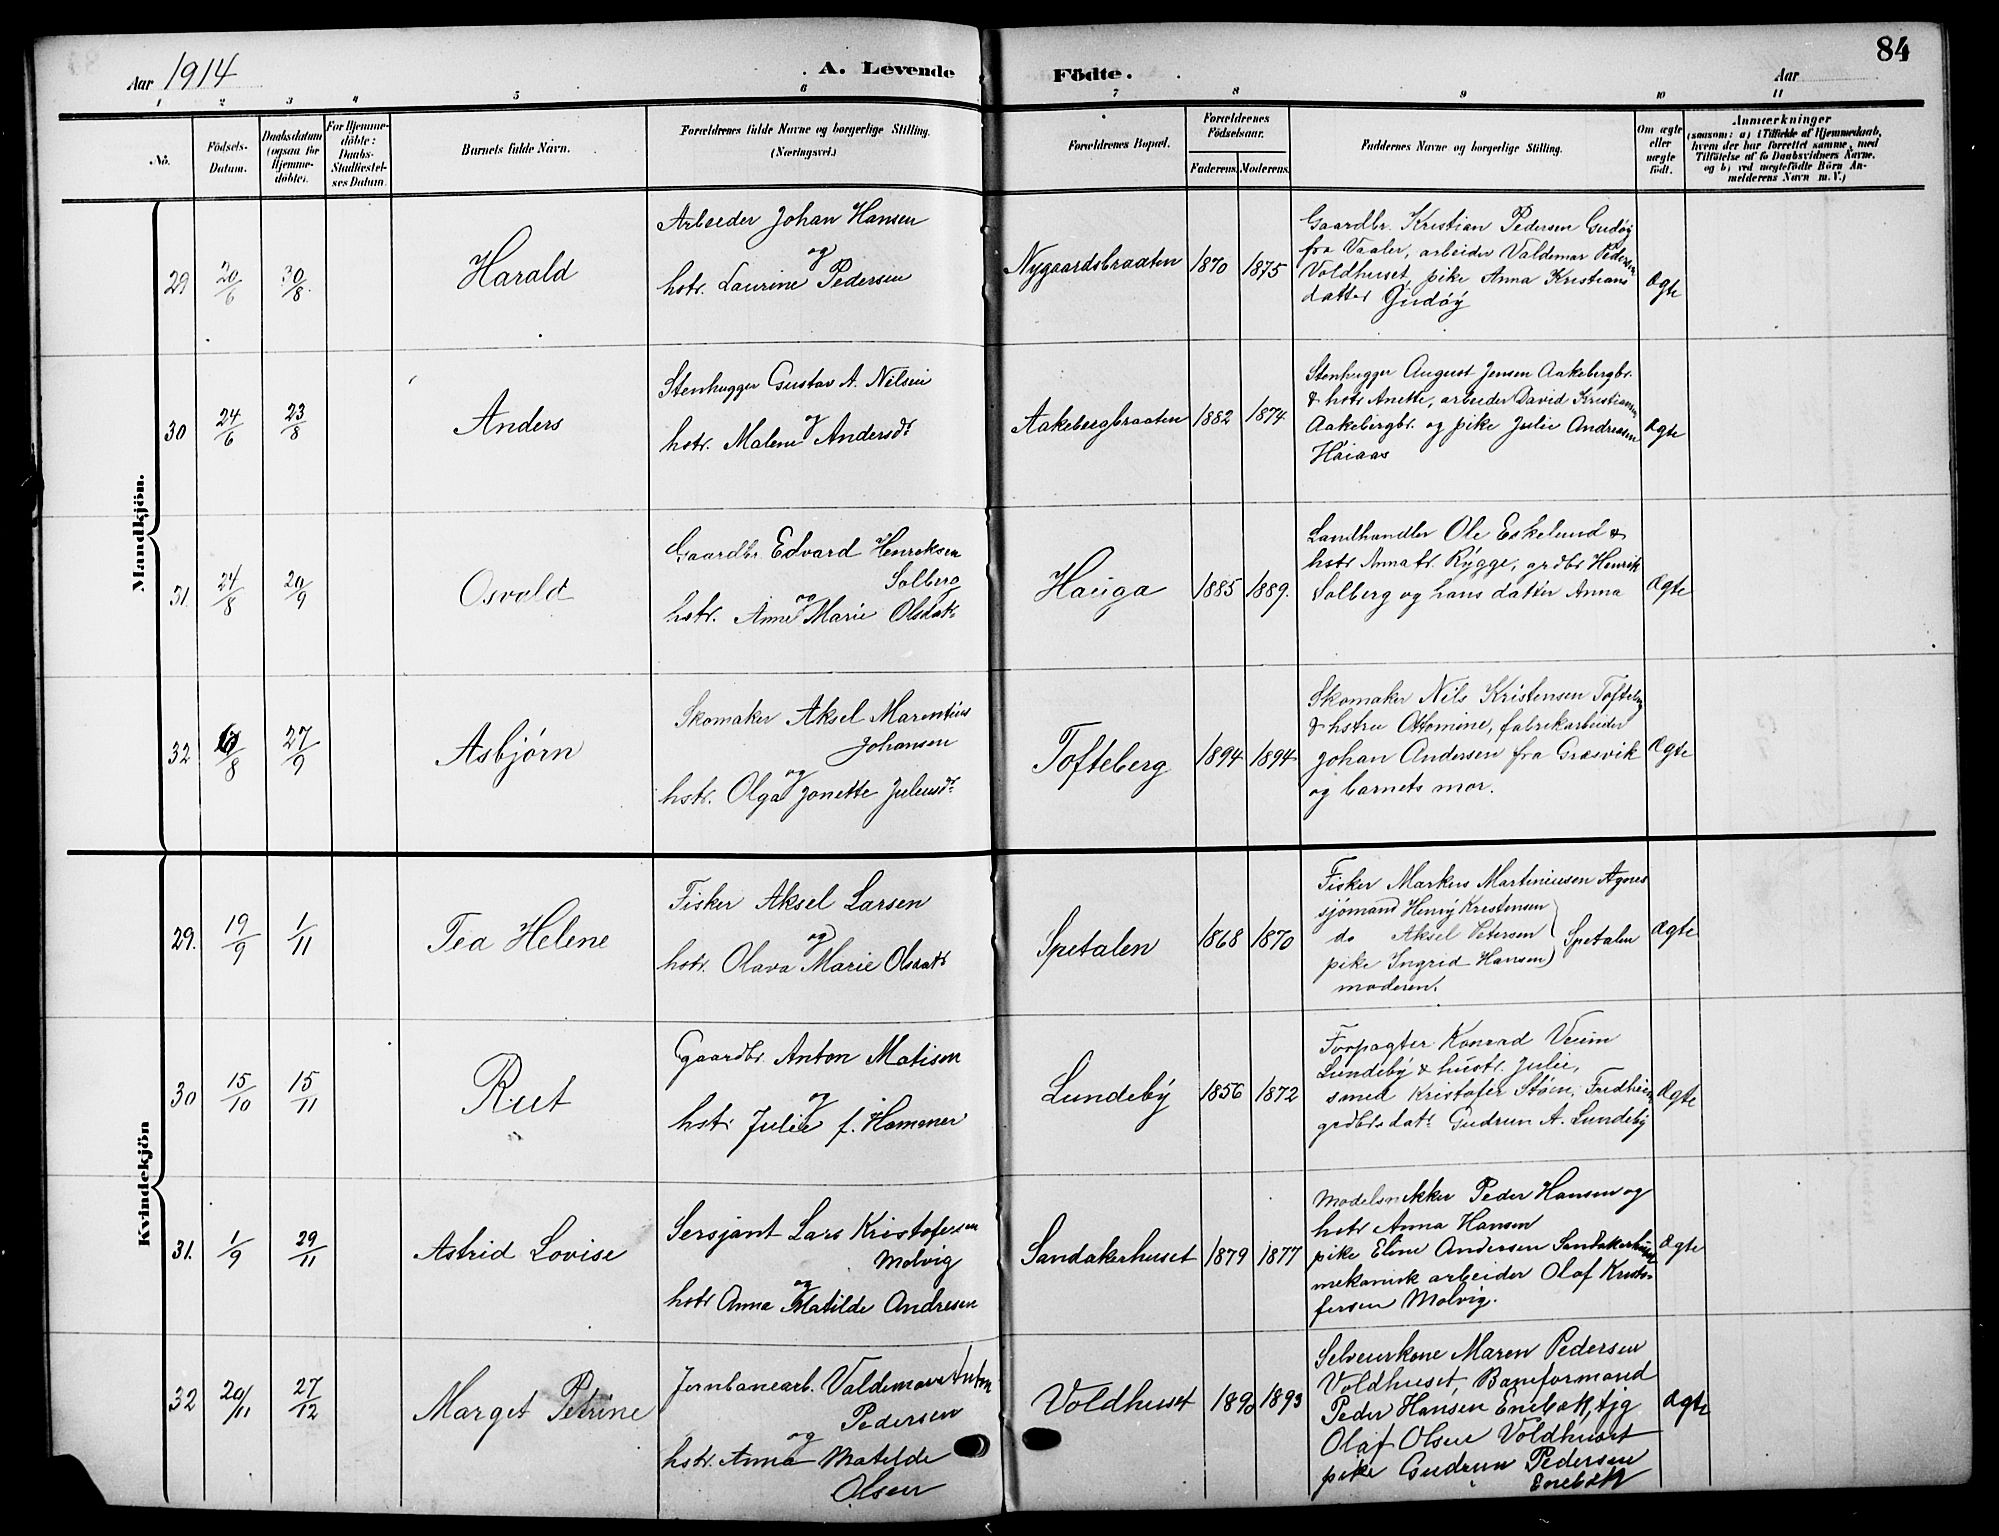 Aar 1914
A. Levende Födte.
Aar
84
1 2 3 4 5 6 7 8 9 10 11
No.
Födsels-
Datum.
Daabsdatum
(ogsaa for
Hjemme-
döbte).
For Hjemme-
döbte:
Daabs-
Stadfæstel-
ses Datum.
Barnets fulde Navn.
Forældrenes fulde Navne og borgerlige Stilling.
(Næringsvei.)
Forældrenes Bopæl.
Forældrenes
Födselsaar.
Faderens. Moderens.
Faddernes Navne og borgerlige Stilling.
Om ægte
eller
uægte
födt.
Anmærkninger
(saasom: a) i Tilfælde af Hjemmedaab,
hvem der har forrettet samme, med
Tilföielse af to Daabsvidners Navne.
og b) ved uægtefödte Börn An-
melderens Navn m. V.)
Mandkjön.
29 20/6 30/8 Harald
Arbeider Johan Hansen
og
hstr. Laurine Pedersen
Nygaardsbraaten 1870 1875
Gaardbr. Kristian Pedersen Gudøy
fra Vaaler, arbeider Valdemar Pedersen
Voldhuset, pike Anna Kristians
datter Gudøy
Ægte
30 24/6 23/8 Anders
Stenhugger Gustav A. Nilsen
og
hstr. Malene Andersdr
Aakebergbraaten 1882 1874
Stenhugger August Jensen Aakebergbr.
& hstr Anette, arbeider David Kristiansen
Aakebergbr. og pike Julie Andresen
Höiaas
Ægte
31. 24/8 20/9 Osvald
Gaardbr Edvard Henriksen
Solberg
og
hstr. Anne Marie Olsdatr
Hauga 1885 1889.
Landhandler Ole Eskelund &
hstr Anna fr. Rygge, grdbr Henrik
Solberg og hans datter Anna
Ægte
32 6/8 27/9 Asbjørn
Skomaker Aksel Marentius
Johansen
og
hstr. Olga Jonette Juliusdr.
Tofteberg 1894 1894
Skomaker Nils Kristensen Tofteberg
& hstru Ottomine, fabrikarbeider
Johan Andersen fra Græsvik
og barnets mor.
Ægte
Kvindekjön
29. 19/9 1/11 Tea Helene
Fisker Aksel Larsen
og
hstr. Olava Marie Olsdatr
Spetalen 1868 1870
Fisker Markus Martiniusen Agnes
sjömand Henry Kristensen
do Aksel Petersen Spetalen
pike Ingrid Hansen
moderen.
Ægte
30 15/10 15/11 Rut
Gaardbr. Anton Matisen
og
hstr Julie f. Hammer
Lundeby 1856 1872
Forpagter Konrad Veum
Lundeby & hustr. Julie,
smed Kristofer Støen, Fredheim
grdbrsdatr Gudrun A. Lundeby
Ægte
31. 1/9 29/11 Astrid Lovise
Sersjant Lars Kristofersen
Molvig
og
hstr Anna Matilde Andresen
Sandakerhuset 1879 1877
Modelsnekker Peder Hansen og
hstr Anna Hansen
pike Eline Andersen Sandakerhuset
mekanisk arbeider Olaf Kristo-
fersen Molvig.
Ægte
32 20/11 27/12 Marget Petrine
Jernbanearb. Valdemar Anton
Pedersen
og
hstr. Anna Matilde
Olsen
Voldhuset 1890 1893
Selveierkone Maren Pedersen
Voldhuset, Baneformand
Peder Hansen Enebæk, tjg
Olaf Olsen Voldhuset
pike Gudrun Pedersen
Enebæk
Ægte